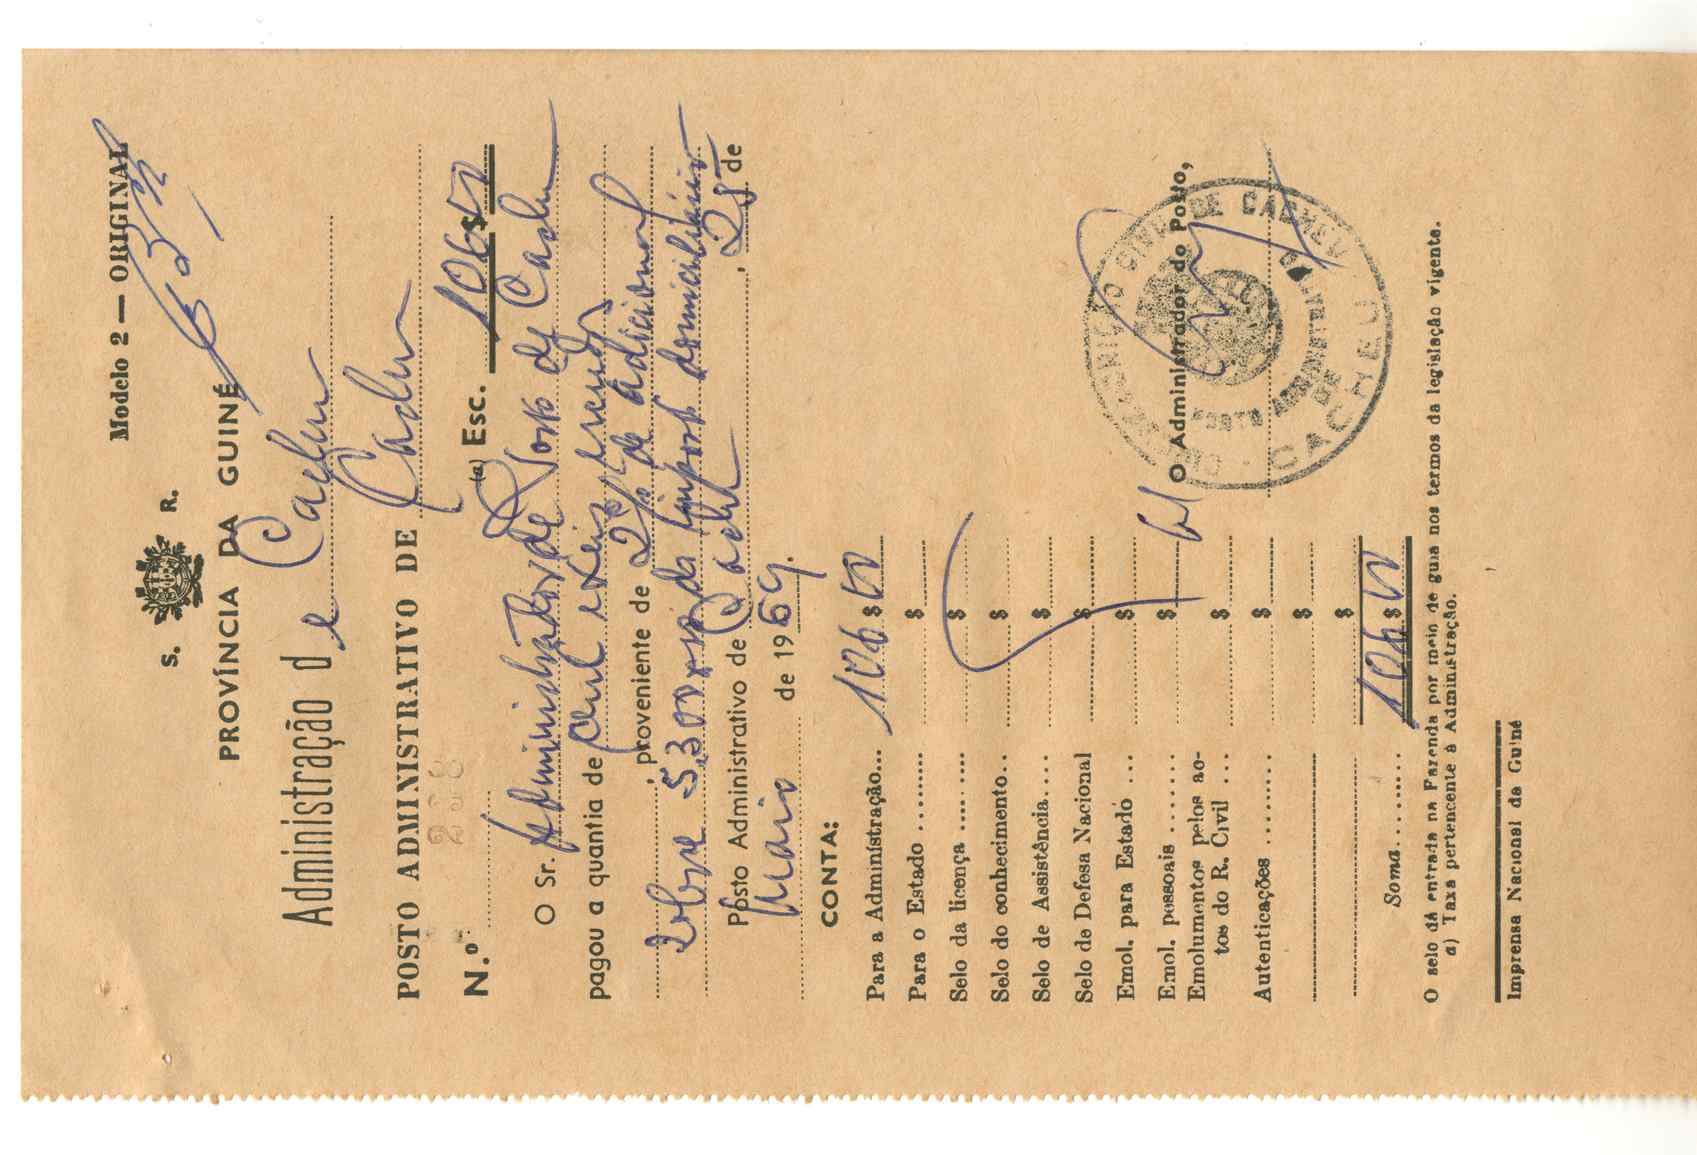 Modelo 2 — ORIGINAL
S. R.
PROVÍNCIA DA GUINÉ
Administração de Cacheu
POSTO ADMINISTRATIVO DE Cacheu
N.º 238 (a) Esc. 106$00
O Sr. Administrador do Posto de Cacheu
pagou a quantia de cento e seis escudos
proveniente de 2% de adicional
sobre 5.300$00 do impost domiciliário
Posto Administrativo de Cacheu, 28 de
Maio de 1969.
CONTA:
Para a Administração... 106$00
Para o Estado ......... $
Selo da licença ........ $
Selo do conhecimento.. $
Selo de Assistência.... $
Selo de Defesa Nacional $
Emol. para Estado ... $
Emol. pessoais ....... $
Emolumentos pelos ao-
tos do R. Civil ... $
Autenticações ........ $
$
$
Soma........ 106$00
O Administrador do Posto,
CIRCUNSCRIÇÃO CIVIL DE CACHEU
POSTO ADMINISTRATIVO DE CACHEU
O selo dá entrada na Fazenda por meio de guia nos termos da legislação vigente.
a) Taxa pertencente à Administração.
Imprensa Nacional da Guiné